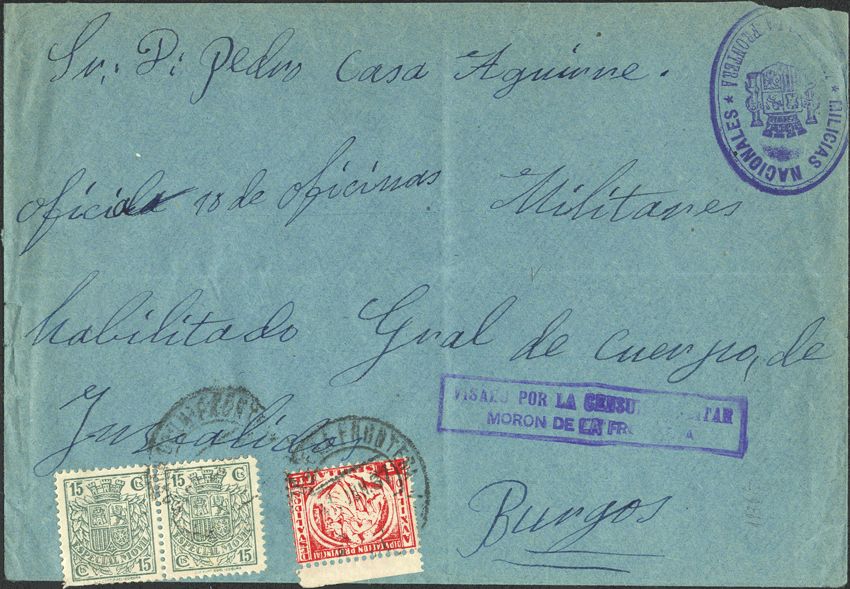 Sr: D: Pedro Casa Aguirre.
oficial 1º de oficinas Militares
habilitado Gral de cuerpo, de
Burgos
★ MILICIAS NACIONALES ★ FRONTERA
VISADO POR LA CENSURA MILITAR
MORON DE LA FRONTERA
15 Cts 15 Cts
15 15
DIPUTACION PROVINCIAL